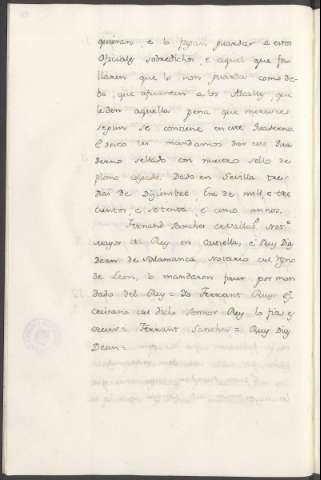 quieran, e lo fagan guardar a estos
oficiales sobredichos, e aquel que fa
llaren que lo non guarda como de-
be, que afruenten a los Alcalles, que
le den aquella pena que merecier
segun se contiene en este quaderno,
E desto les mandamos dar este qua
derno sellado con nuestro sello de
plomo colgado. Dado en Sevilla tres
dias de Diziembre, Era de mill, e tre
cientos, e setenta, e cinco annos.
Fernand Sanchez de Vallad. Not.º
mayor del Rey en Castiella, e Ruy Diaz
Dean de Salamanca Notario del Regno
de Leon, lo mandaron facer por man
dado del Rey = Yo Ferrant Ruyz
escrivano del dicho Sennor Rey lo fiz
escrivir = Ferrant Sanchez = Ruy Diaz
Dean =